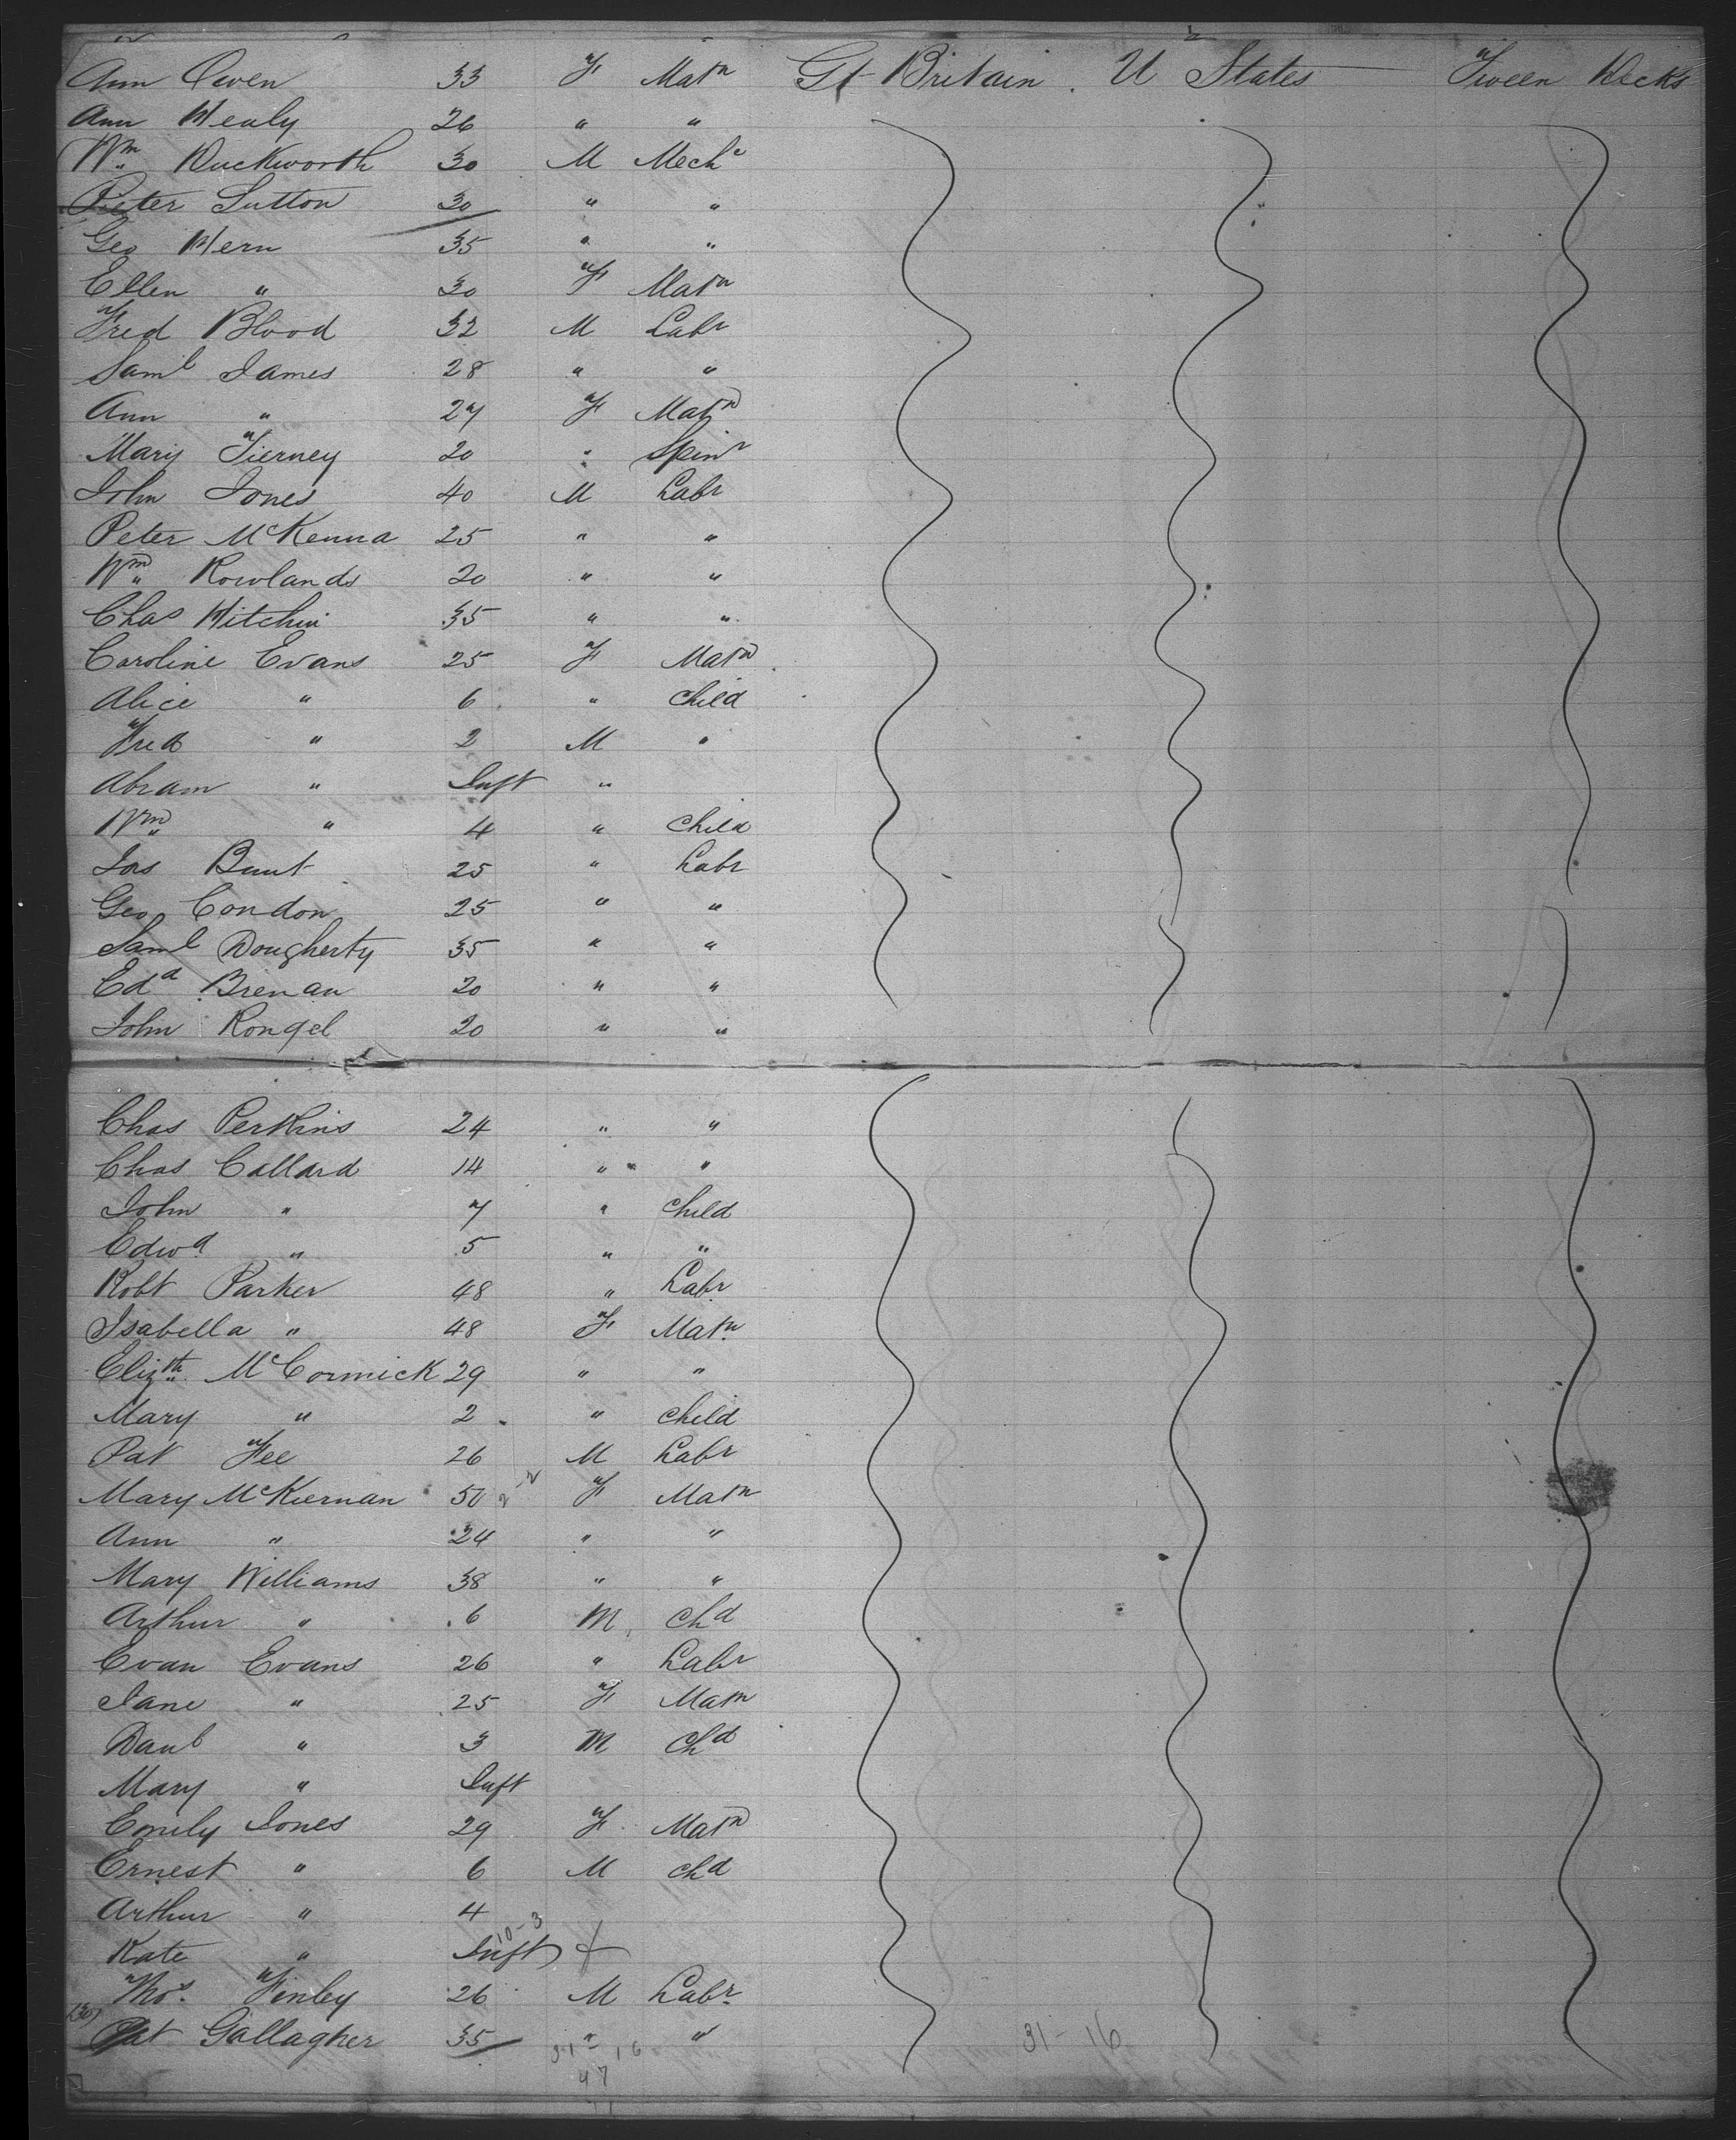 Ann Owen 33 F Matn Gt Britain . U States Tween Decks
Ann Healy 26 " "
Wm Duckworth 30 M Mechc
Peter Sutton 30 " "
Geo Hern 35 " "
Ellen " 30 F Matn
Fred Blood 32 M Labr
Saml James 28 " "
Ann " 27 F Matn
Mary Tierney 20 " Spinr
John Jones 40 M Labr
Peter McKenna 25 " "
Wm Rowlands 20 " "
Chas Hitchin 35 " "
Caroline Evans 25 F Matn
Alice " 6 " Child
Fred " 2 M "
Abram " Inft "
Wm " 4 " Child
Jos Bunt 25 " Labr
Geo Condon 25 " "
Saml Dougherty 35 " "
Edd Brenan 20 " "
John 20 " "
Chas Perkins 24 " "
Chas Callard 14 " "
John " 7 " Child
Edwd " 5 " "
Robt Parker 48 " Labr
Isabella " 48 F Matn
Elizth McCormick 29 " "
Mary " 2 " Child
Pat Fee 26 M Labr
Mary McKiernan 50 F Matn
Ann " 24 " "
Mary Williams 38 " "
Arthur " 6 M Chd
Evan Evans 26 " Labr
Jane " 25 F Matn
Danl " 3 M Chd
Mary " Inft
Emily Jones 29 F Matn
Ernest " 6 M chd
Arthur " 4
10-3
Kate " Inft
Thos. Finley 26 M Labr
Pat Gallagher 35 " "
31-16 31-16
47